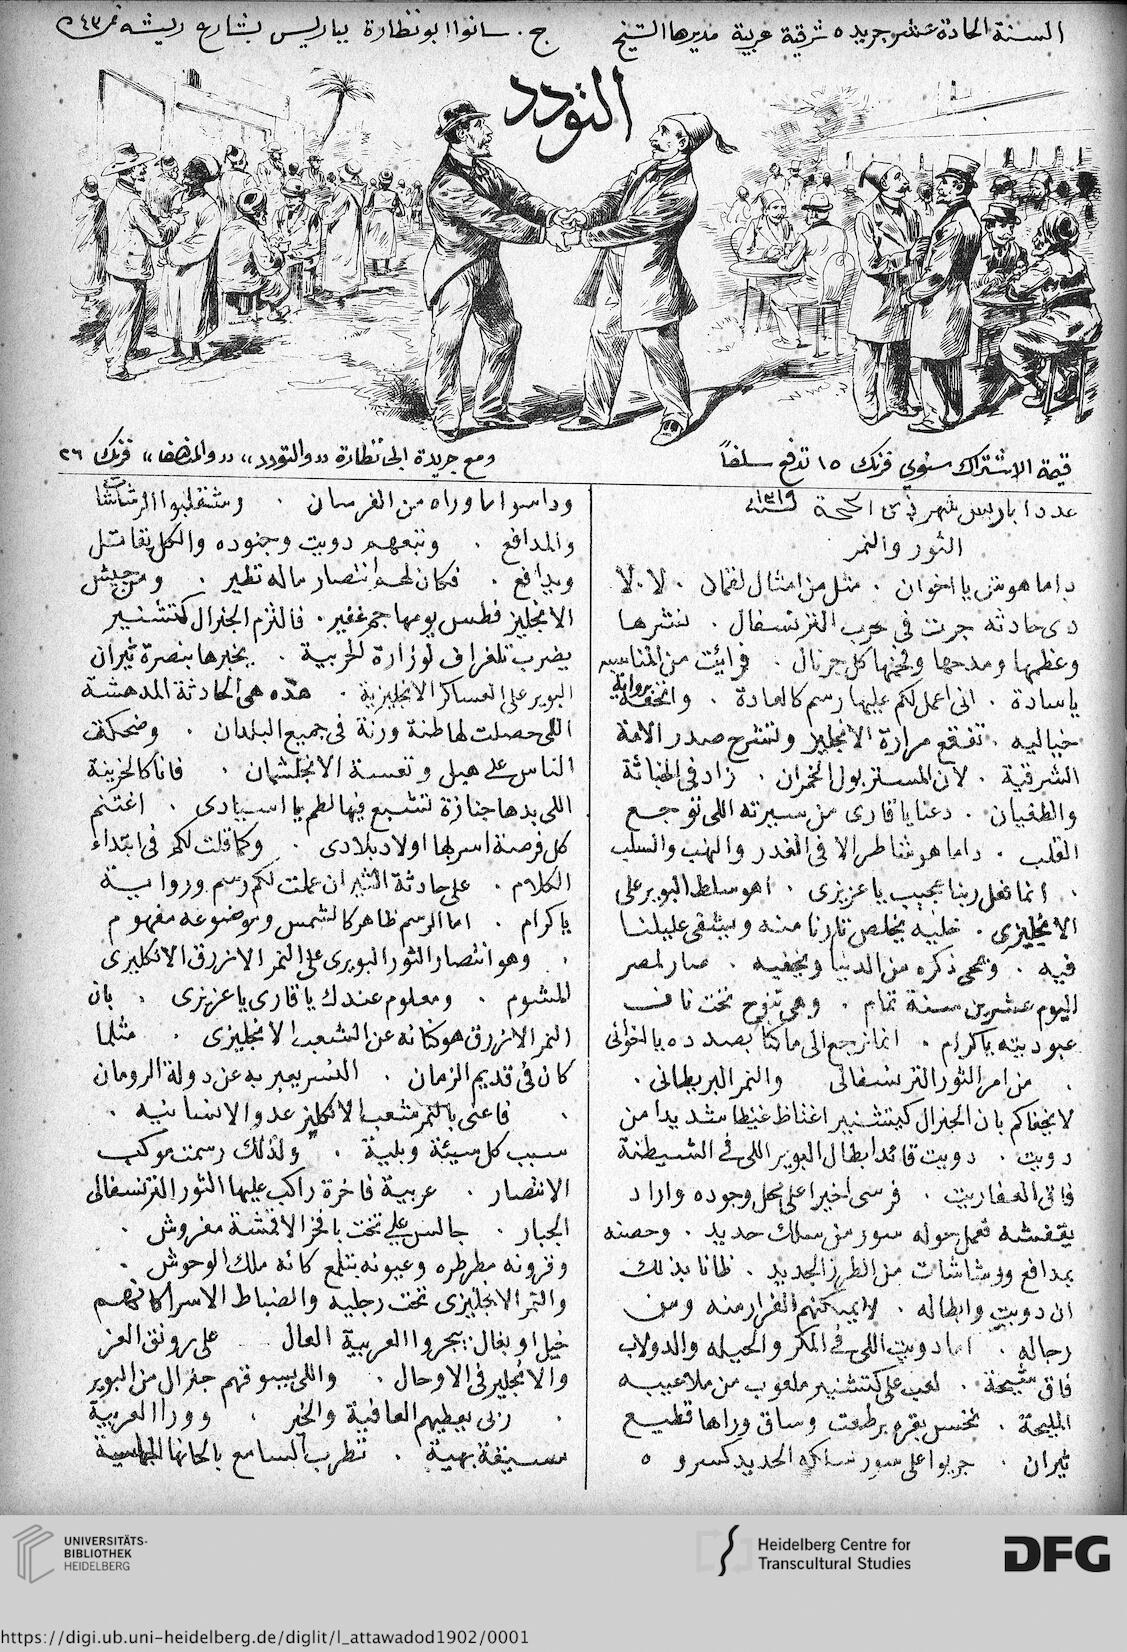 السنة الحادة عشر جريده شرقية عربية مديرها الشيخ ج. سانوا ابو نظارة بباريس بشارع ريشه نمر ٤٣
التودد
قيمة الاشتراك سنوي فرنك ١٥ تدفع سلفاً
ومع جريدة ابي نظارة «والتودد» «والمنصف» فرنك ٢٦
عدد ١ باريس شهر ذي الحجة سنة ١٣١٩
الثور والنمر
داما هوش يا اخوان . مثل من امثال لقمان . لا. لا
دى حادثه جرت فى حرب الترنسفال . نشرها
وعظمها ومدحها وفخمها كل جرنال . فرائيت من المناسبه
يا سادة . انى اعمل لكم عليها رسم كالعادة . واتحفه برواية
خياليه . تفقع مرارة الانجليز وتشرح صدر الامة
الشرقية . لان المستر بول الخمران . زاد فى الخباثة
والطغيان . دعنا يا قارى من سيرته اللى توجع
القلب . داما هو شاطر الا فى الغدر والنهب والسلب
. انما فعل ربنا عجيب يا عزيزى . اهو سلط البوير على
الانجليزى . خليه يخلص تارنا منه ويشفى عليلنا
فيه . ويمحى ذكره من الدنيا ويخفيه . صار لمصر
اليوم عشرين سنة تمام . وهى تنوح تحت ناف
عبوديته يا كرام . انما نرجع الى ما كنا بصدده يا اخوانى
. من امر الثور الترنسفالى والنمر البريطانى .
لا يخفاكم بان الجنرال كيتشنير اغتاظ غيظا شديدا من
دويت . دويت قائد ابطال البوير اللى فى الشيطنة
فاق العفاريت . فرسى اخيرا على محل وجوده واراد
يقفشه فعمل حوله سور من سلك حديد . وحصنه
بمدافع ورشاشات من الطرز الجديد . ظانا بذلك
ان دويت وابطاله . لا يمكنهم الفرار منه ومن
رجاله . اما دويت اللى فى المكر والحيله والدولاب
فاق شيحة . لعب على كتشنير ملعوب من ملاعيبه
المليحة . نخس بقره برطعت وساق وراها قطيع
ثيران . جريوا على سور سلك الحديد كسروه
وداسوا ما وراه من الفرسان . وشنقلبوا الرشاشات
والمدافع . وتبعهم دويت وجنوده والكل يقاتل
ويدافع . فكان لهم انتصار ماله نظير . ومن جيش
الانجليز فطس يومها جم غفير . فالتزم الجنرال كتشنير
يضرب تلغراف لوزارة الحربية . يخبرها بنصرة ثيران
البوير على العساكر الانجليزية . هذه هى الحادثة المدهشة
اللى حصلت لها طنة ورنة فى جميع البلدان . وضحكت
الناس على هبل وتعسة الانجلشمان . فانا كالحزينة
اللى بدها جنازة تشبع فيها لطم يا اسيادى . اغتنم
كل فرصة اسر بها اولاد بلادى . وكما قلت لكم فى ابتداء
الكلام . على حادثة الثيران عملت لكم رسم ورواية
يا كرام . اما الرسم ظاهر كالشمس وموضوعه مفهوم
. وهو انتصار الثور البويرى على النمر الازرق الانكليزى
المشوم . ومعلوم عندك يا قارى يا عزيزى . بان
النمر الازرق هو كنايه عن الشعب الانجليزى . مثلما
كان فى قديم الزمان . النسر يعبر به عن دولة الرومان
. فاعنى بالنمر شعب الانكليز عدو الانسانيه .
سبب كل سيئة وبلية . ولذلك رسمت موكب
الانتصار . عربية فاخرة راكب عليها الثور الترنسفالى
الجبار . جالس على تخت بافخر الاقمشة مفروش .
وقرونه مطرطره وعيونه بتلمع كانه ملك الوحوش .
والنمر الانجليزى تحت رجليه والضباط الاسرا كانهم
خيل او بغال : بيجروا العربية العال على رونق العز
والانجليز فى الاوحال . واللى بيسوقهم جنرال من البوير
. ربى يعطيهم العافية والخير . وورا العربية
سنيفة بهية . تطرب السامع بالحانها
UNIVERSITÄTS-
BIBLIOTHEK
HEIDELBERG
Heidelberg Centre for
Transcultural Studies
DFG
https://digi.ub.uni-heidelberg.de/diglit/l_attawadod1902/0001